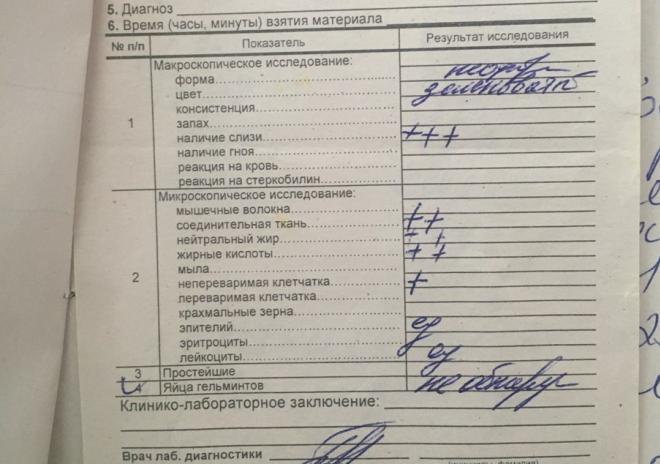 5. Диагноз
6. Время (часы, минуты) взятия материала
№ п/п Показатель Результат исследования
1
Макроскопическое исследование:
форма
цвет зеленоватый
консистенция
запах
наличие слизи +++
наличие гноя
реакция на кровь
реакция на стеркобилин
2
Микроскопическое исследование:
мышечные волокна
соединительная ткань ++
нейтральный жир
жирные кислоты ++
мыла
непереваримая клетчатка +
переваримая клетчатка
крахмальные зерна
эпителий ед
эритроциты
лейкоциты ед
3 Простейшие
4 Яйца гельминтов не обнаруж
Клинико-лабораторное заключение:
Врач лаб. диагностики